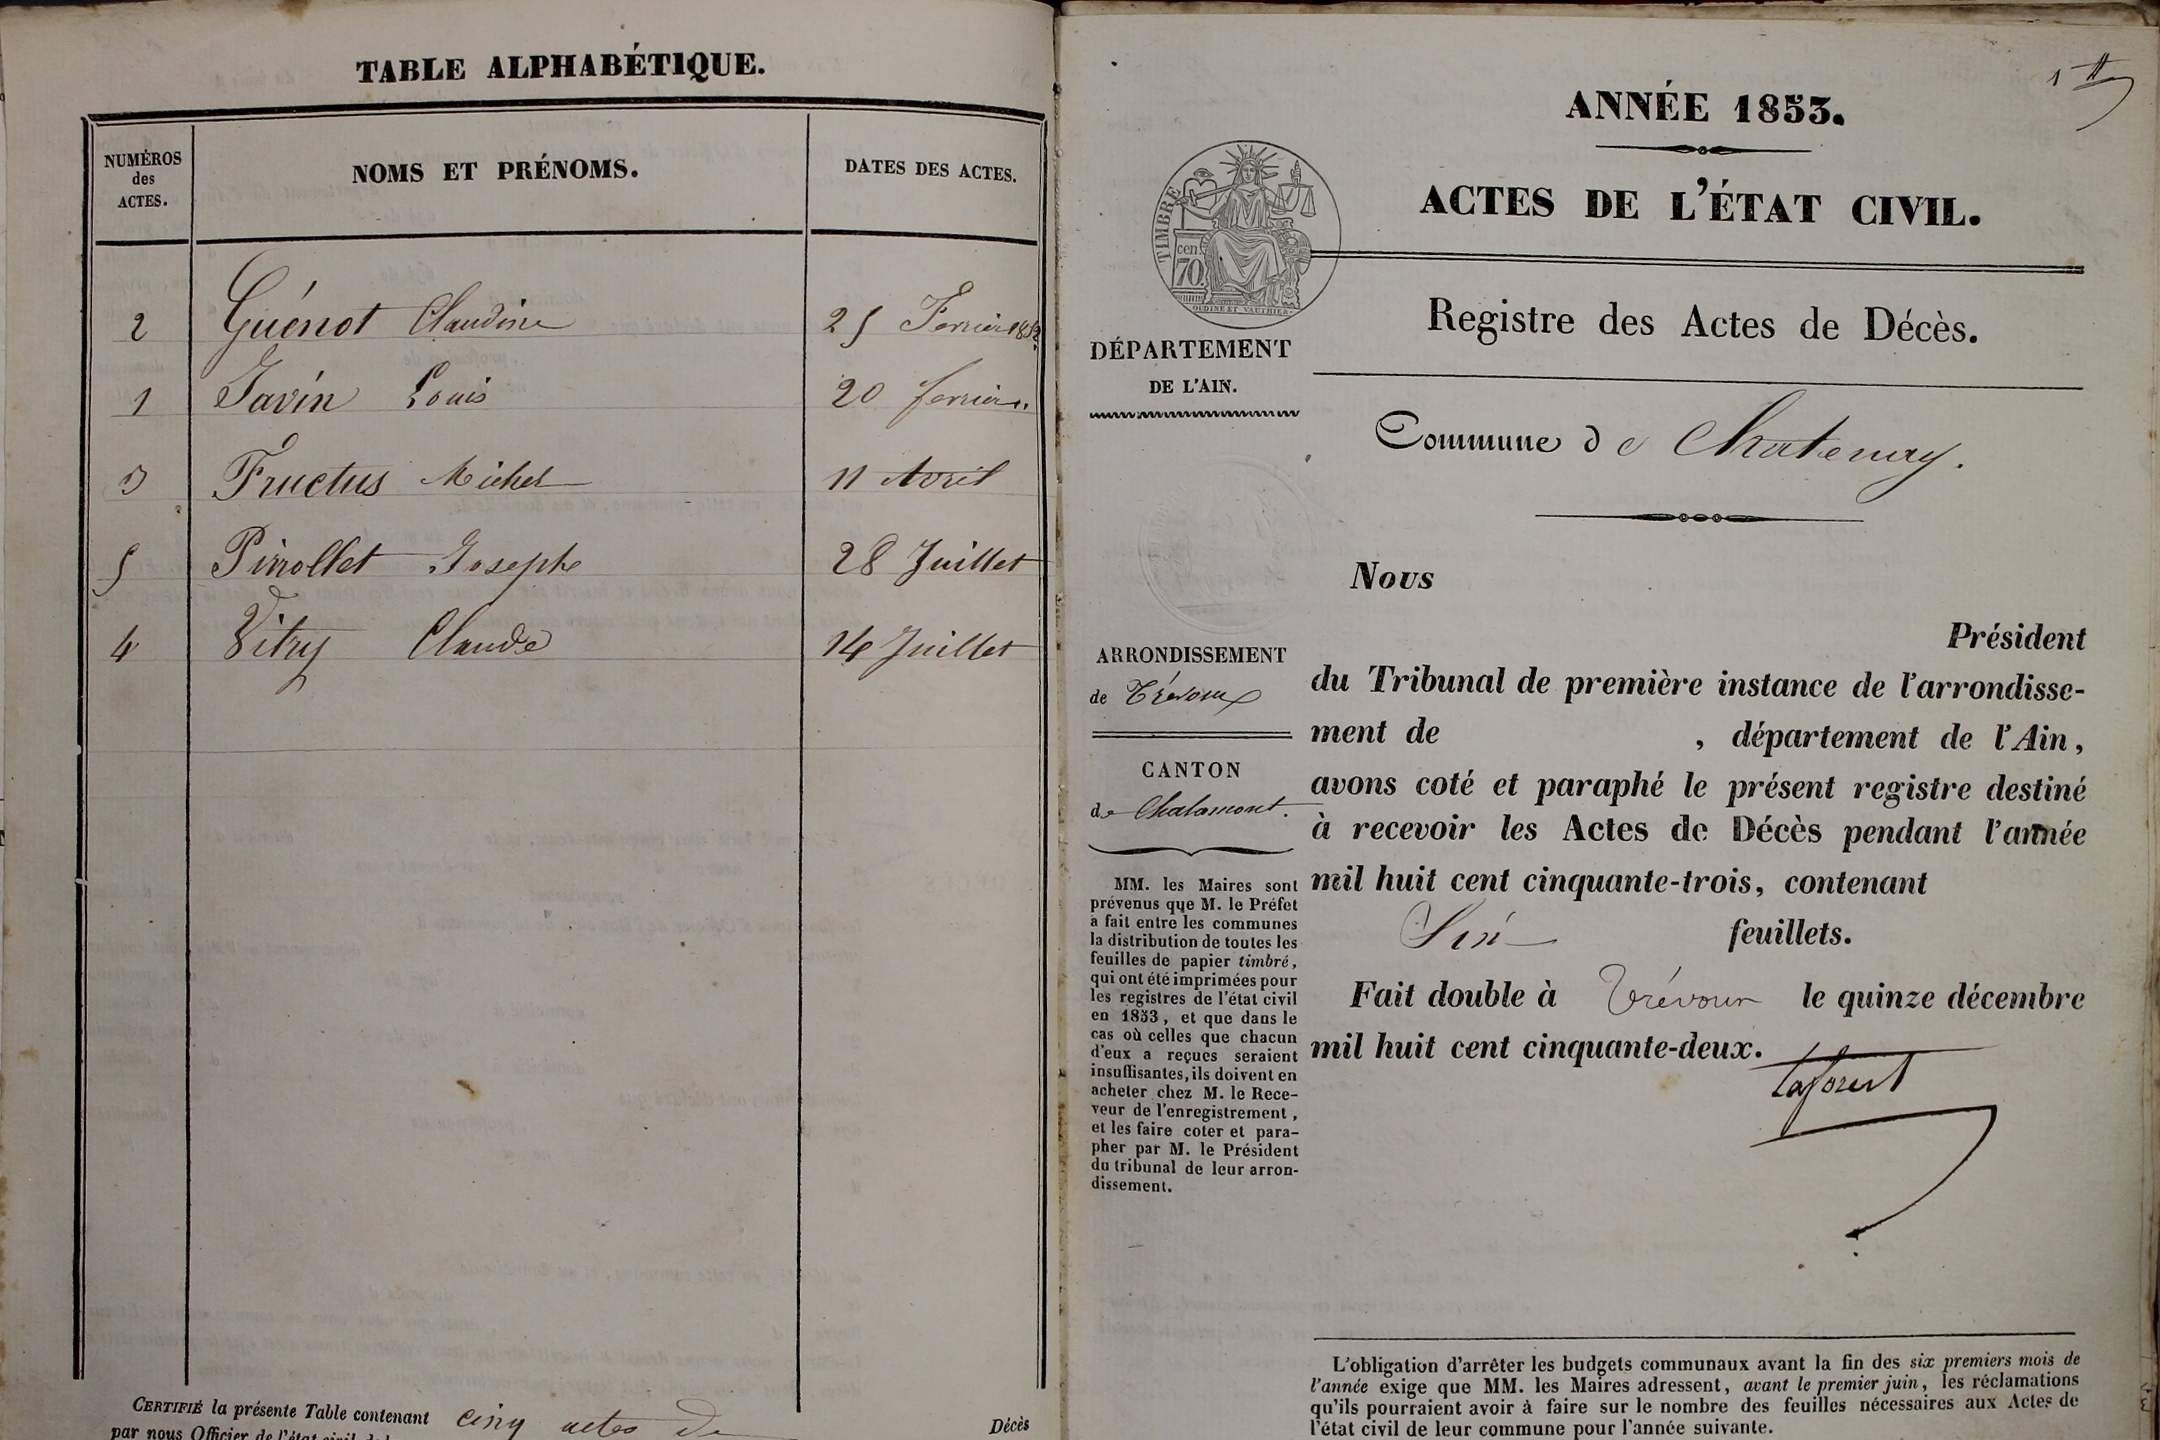 TABLE ALPHABÉTIQUE.
NUMÉROS des ACTES.
NOMS ET PRÉNOMS.
DATES DES ACTES.
2 Guénot Claudine 25 Fevrier 1852
1 Javin Louis 20 fevrier
3 Fructus Michel 11 Avril
5 Pinollet Joseph 28 Juillet
4 Vitry Claude 14 Juillet
CERTIFIÉ la présente Table contenant cinq actes de Décès
par nous Officier de l'état civil
1
ANNÉE 1853.
ACTES DE L'ÉTAT CIVIL.
TIMBRE
cen. 70.
OUDINÉ ET VAUTHIER
Registre des Actes de Décès.
DÉPARTEMENT
DE L'AIN.
Commune de Chatenay.
ARRONDISSEMENT
de Trévoux
CANTON
de Chalamont.
MM. les Maires sont
prévenus que M. le Préfet
a fait entre les communes
la distribution de toutes les
feuilles de papier timbré,
qui ont été imprimées pour
les registres de l'état civil
en 1853, et que dans le
cas où celles que chacun
d'eux a reçues seraient
insuffisantes, ils doivent en
acheter chez M. le Rece-
veur de l'enregistrement,
et les faire coter et para-
pher par M. le Président
du tribunal de leur arron-
dissement.
Nous
Président
du Tribunal de première instance de l'arrondisse-
ment de , département de l'Ain,
avons coté et paraphé le présent registre destiné
à recevoir les Actes de Décès pendant l'année
mil huit cent cinquante-trois, contenant
feuillets.
Fait double à Trévoux le quinze décembre
mil huit cent cinquante-deux.
Laforest
L'obligation d'arrêter les budgets communaux avant la fin des six premiers mois de
l'année exige que MM. les Maires adressent, avant le premier juin, les réclamations
qu'ils pourraient avoir à faire sur le nombre des feuilles nécessaires aux Actes de
l'état civil de leur commune pour l'année suivante.